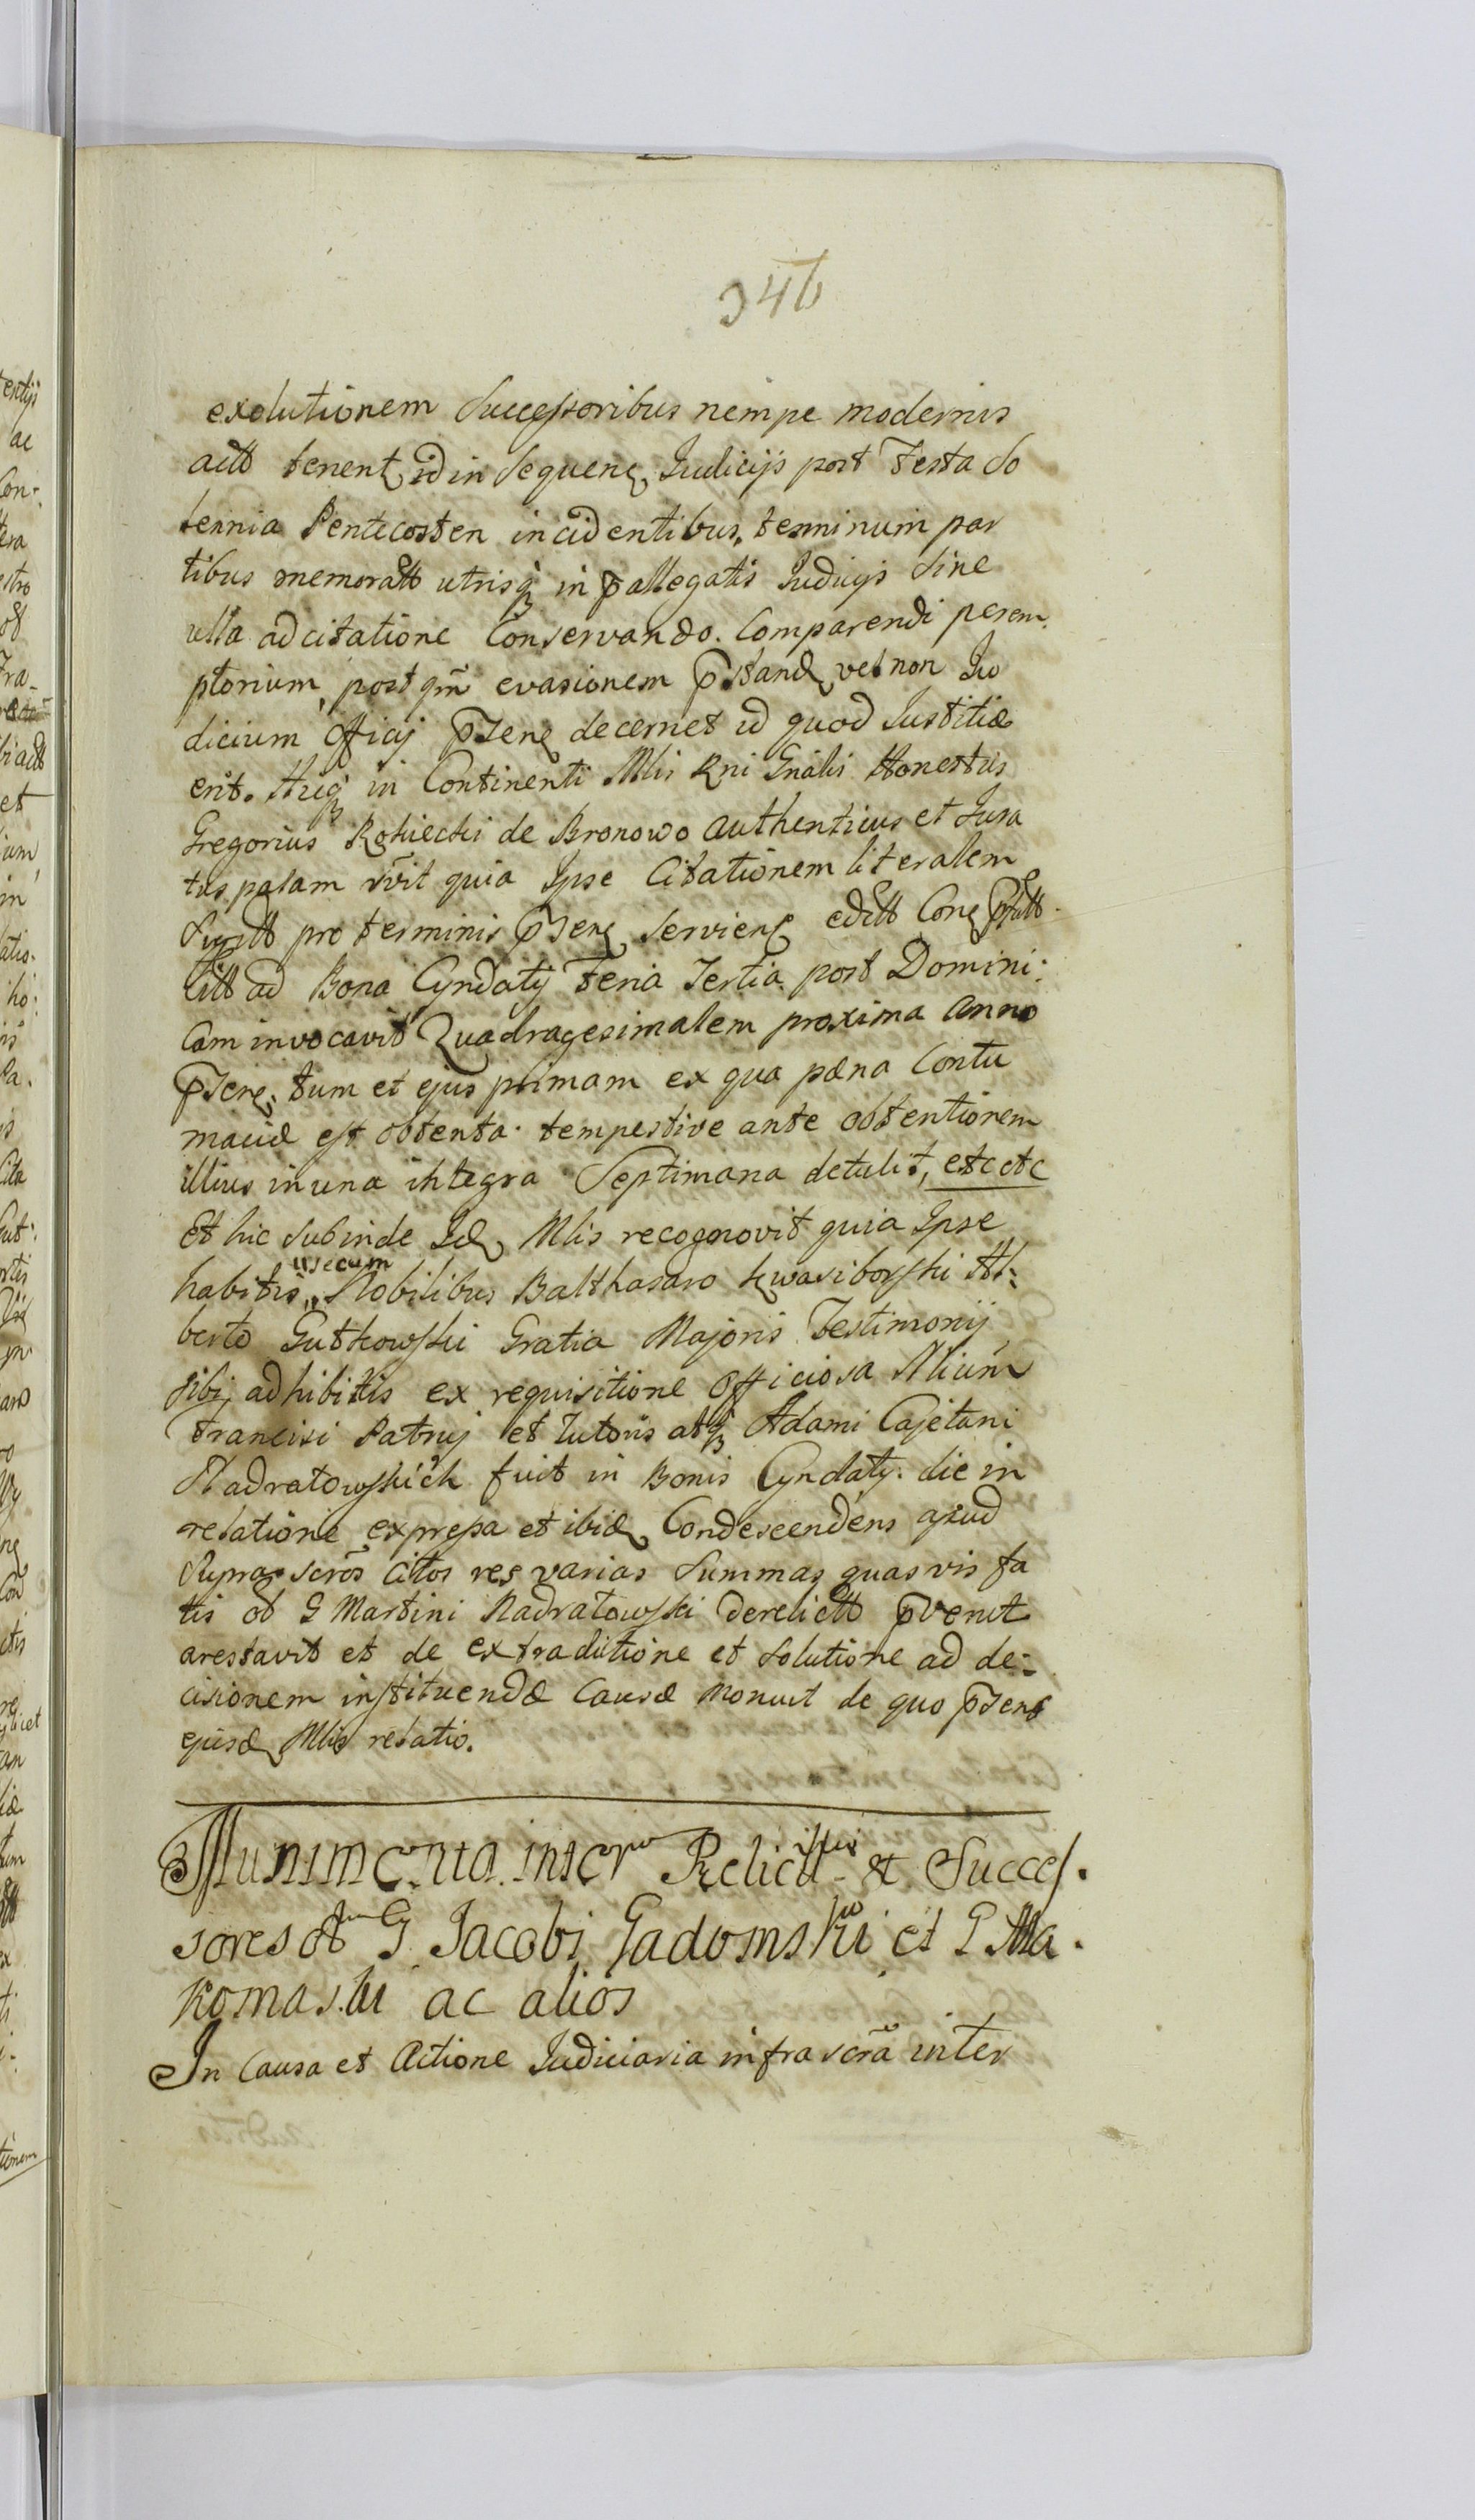 346
exolutionem Successoribus nempe modernis
actt tenent id in Sequenꝫ Judicijs post Festa So
lennia Pentecosten incidentibus, terminum par
tibus memoratt utrisqꝫ in p̄allegatis Judicijs Sine
ulla adcitatione Conservando. Comparendi perem
ptorium, post qm̄ evasionem p̄standꝫ vel non Ju
dicium Officij p̄senꝫ decernet id quod Justitiæ
erit. Hicqꝫ in Continenti Mlis Rni Gnalis Honestus
Gregorius Rokiecki de Bronowo Authenticus et Jura
tus palam rvit quia Ipse Citationem literalem
pro terminis p̄senꝫ Servienꝫ editt Conꝫ
Citt ad Bona Cyndaty Feria Tertia post Domini:
cam invocavit Quadragesimalem proxima Anno
p̄senꝫ. tum et ejus primam ex qua pæna Contu
maciæ est obtenta. tempestive ante obtentionem
illius in una integra Septimana detulit, etc etc
Et hic Subinde Idꝫ Mlis recognovit quia Ipse
habitis secum Nobilibus Balthasaro Kwasiborski Al:
berto Gutkowski Gratia Majoris Testimonij
sibi adhibitis ex requisitione Officiosa Nlium
Francisi Patruj et Tutoris atqꝫ Adami Cajetani
Nadratowskich fuit in Bonis Cyndaty. die in
relatione expressa et ibidꝫ Condescendens apud
Supra scros Citos res varias Summas quasvis fa
tis ol G Martini Nadratowski derelictt p̄venit
arestavit et de extraditione et Solutione ad de:
cisionem instituendæ Causæ Monuit de quo p̄sens
ejusdꝫ Mlis relatio.
Munimenta inter Relictt et Succes.
sores ol G Jacobi Gadomski et G Ma.
komaski ac alios
In Causa et Actione Judiciaria infra scra inter